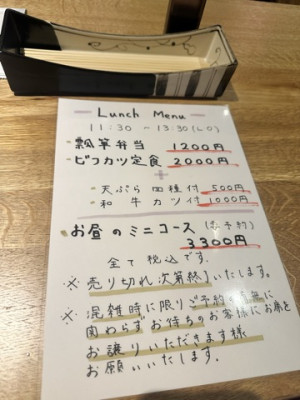 Lunch Menu
11:30 ~ 13:30(L.O)
・瓢箪弁当 1200円
・ビフカツ定食 2000円
+
・天ぷら四種付 500円
・和牛カツ付 1000円
・お昼のミニコース (要予約)
3300円
全て税込です。
※ 売り切れ次第終了いたします。
※ 混雑時に限りご予約の有無に
関わらずお待ちのお客様にお席を
お譲りいただきます様
お願いいたします。